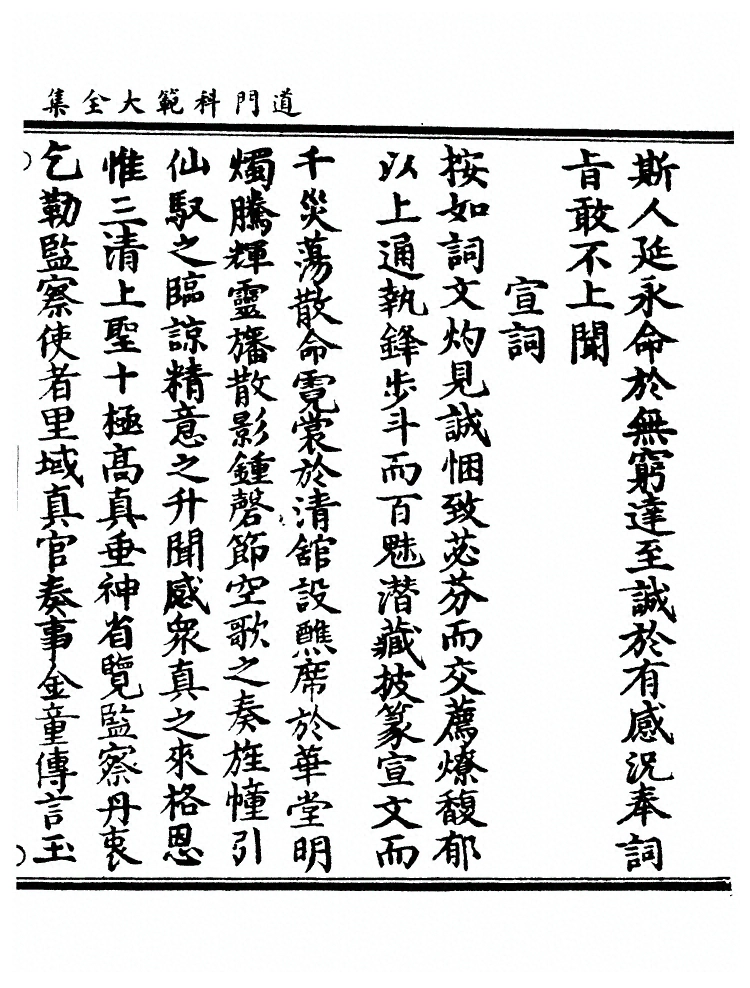 道門科範大全集
斯人延永命於無窮達至誠於有感況奉詞
旨敢不上聞
宣詞
按如詞文灼見誠悃致苾芬而交薦燎馥郁
以上通執鋒步斗而百魅潛藏披篆宣文而
千災蕩散命霓裳於清舘設醮席於華堂明
燭騰輝靈旛散影鍾磬節空歌之奏旌幢引
仙馭之臨諒精意之升聞感衆真之來格恩
惟三清上聖十極高真垂神省覽監察丹衷
乞勒監察使者里域真官奏事金童傳言玉